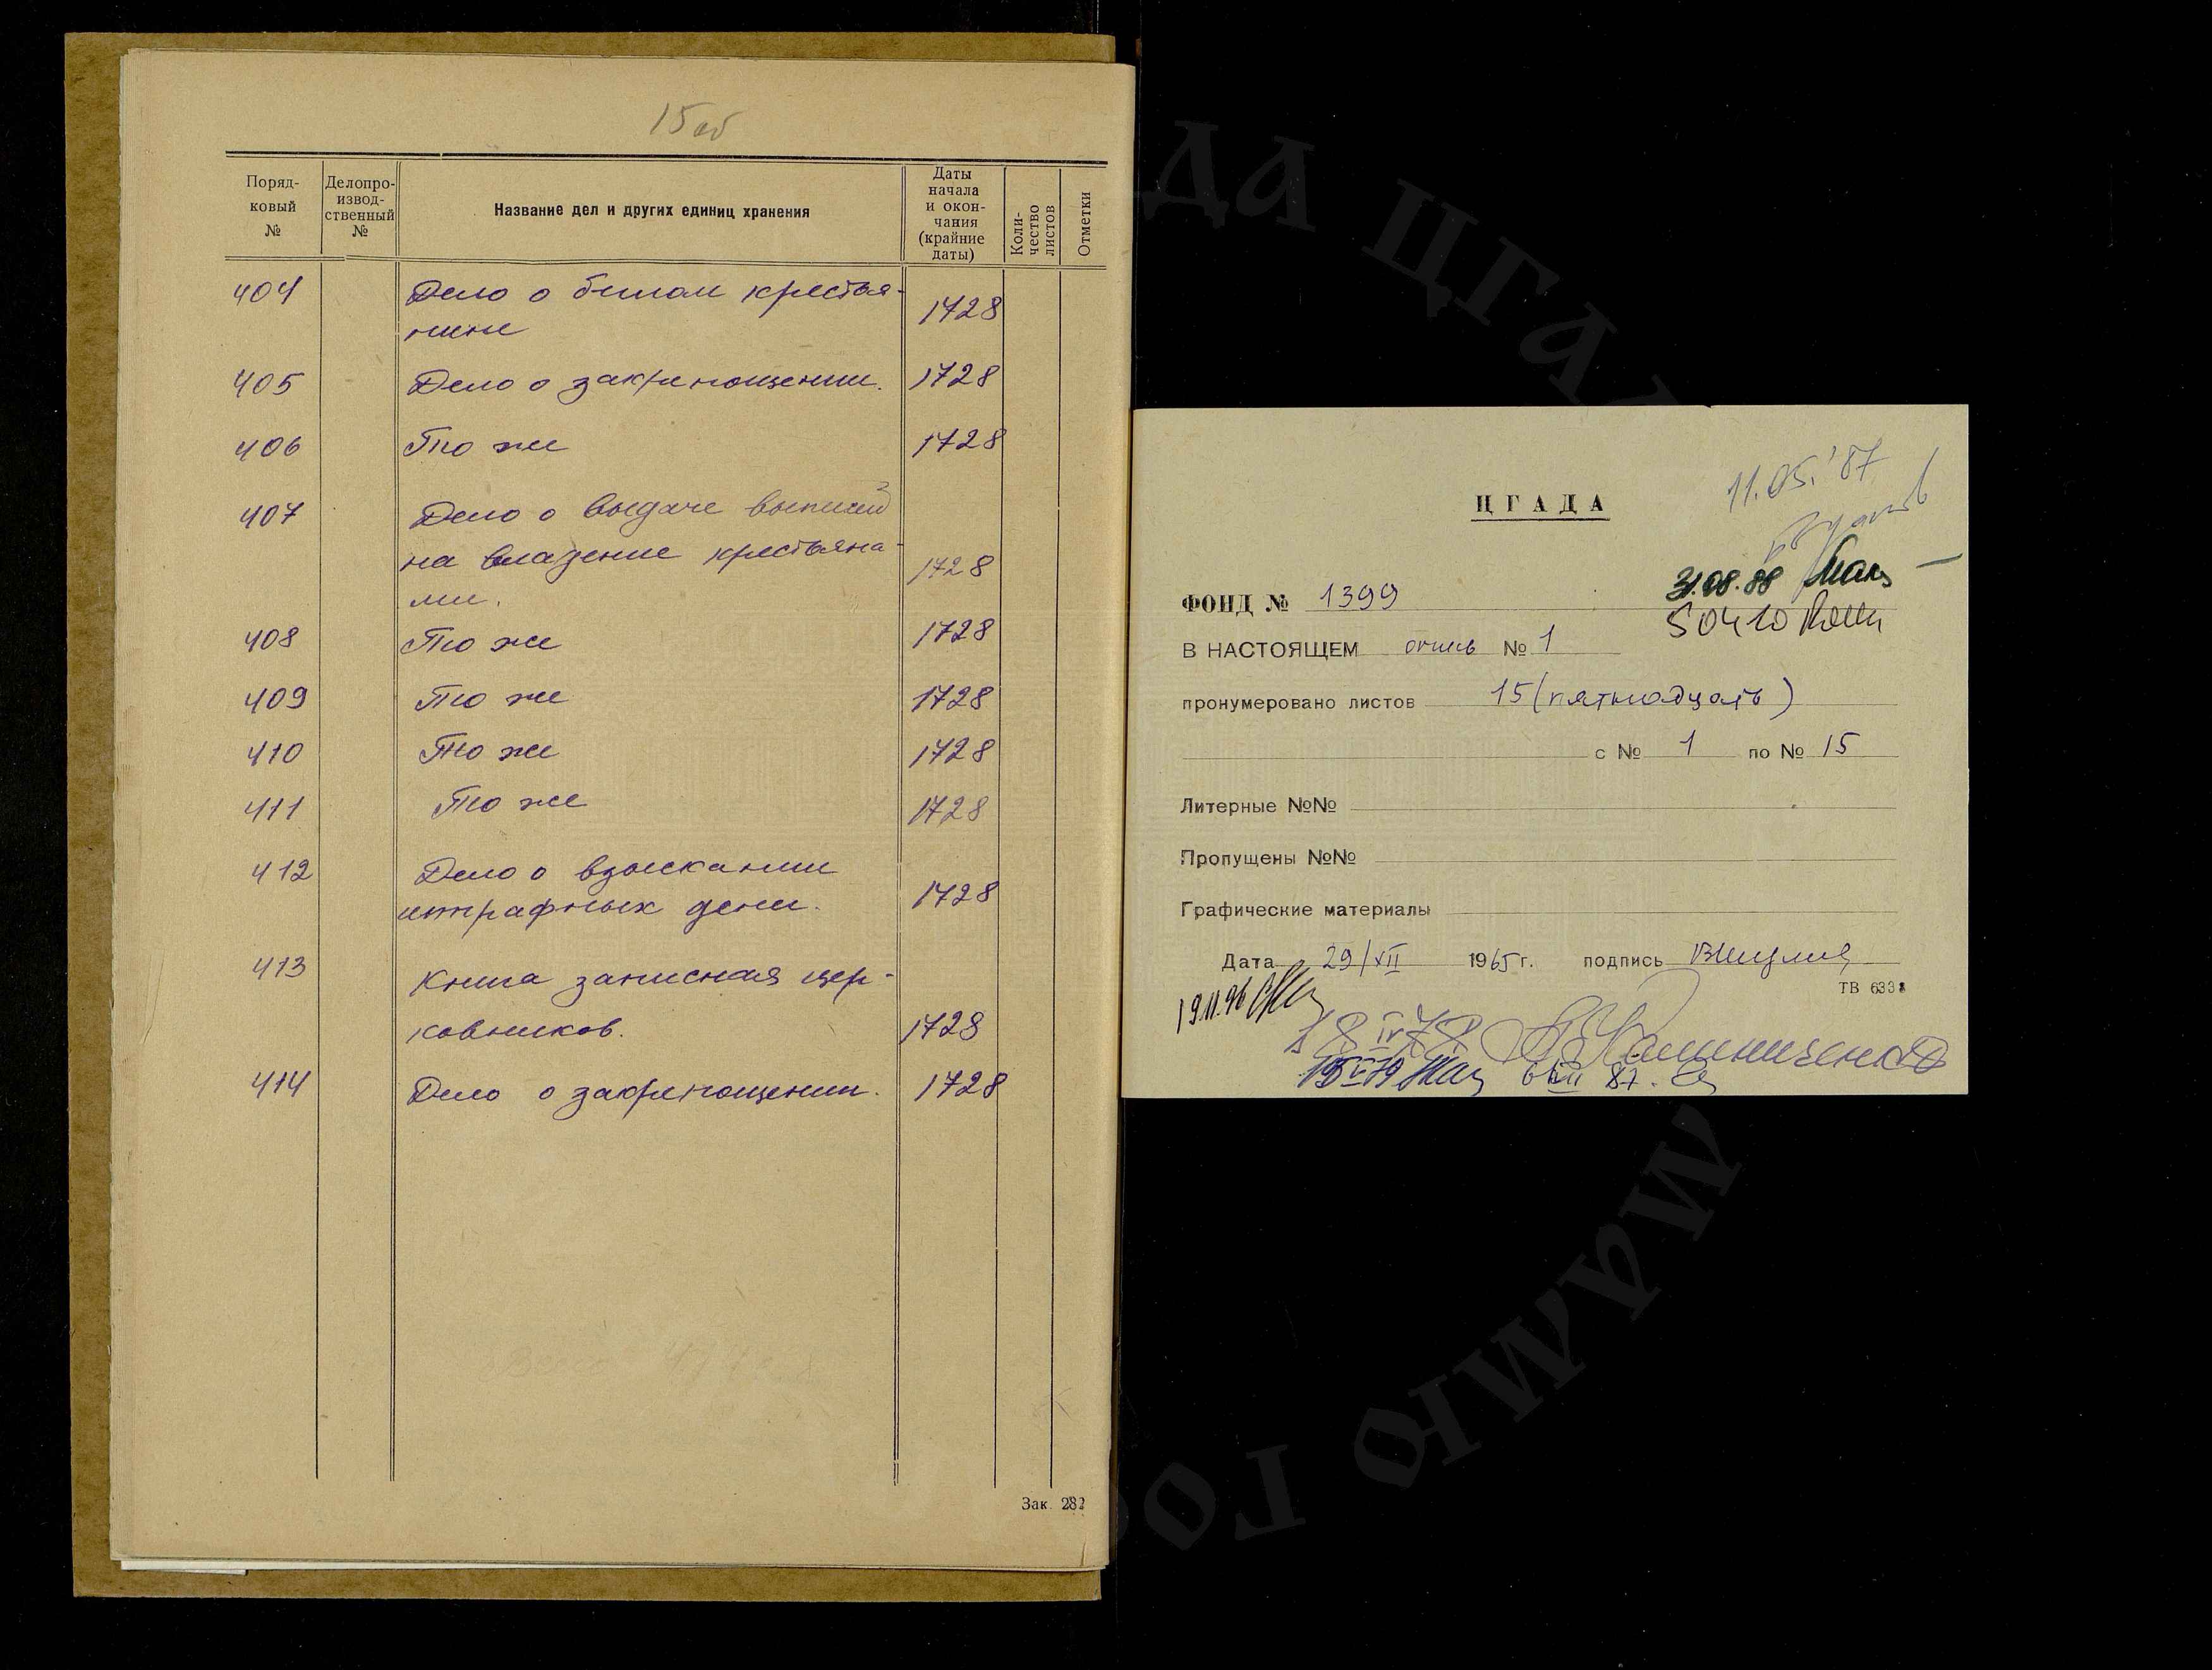 15 об
Поряд-
ковый
№
Делопро-
извод-
ственный
№
Название дел и других единиц хранения
Даты
начала
и окон-
чания
(крайние
даты)
Коли-
чество
листов
Отметки
404 Дело о беглом крестья- 1728
нине
405 Дело о закрепощении. 1728
406 То же 1728
407 Дело о выдаче
на владение крестьяна- 1728
ми.
408 То же 1728
409 То же 1728
410 То же 1728
411 То же 1728
412 Дело о взыскании
штрафных денег. 1728
413 Книга записная цер-
ковников. 1728
414 Дело о закрепощении. 1728
Зак. 282
ЦГАДА
11.05.'87
31.08.88
ФОНД № 1399
В НАСТОЯЩЕМ опись № 1
пронумеровано листов 15 (пятнадцать)
с № 1 по № 15
Литерные №№
Пропущены №№
Графические материалы
Дата 29/XII 1965 г. подпись
ТВ 6331
19.11.96
18 IV 78 Калиниченко
87.